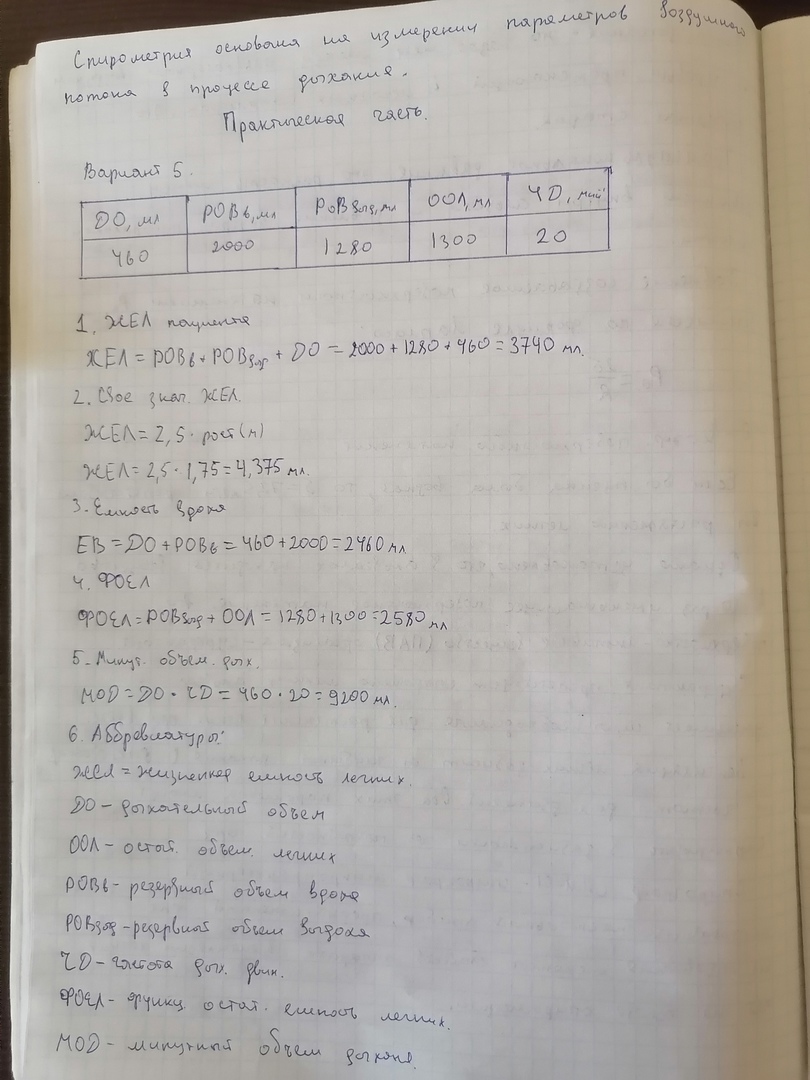 Спирометрия основана на измерении параметров воздушного
потока в процессе дыхания.
Практическая часть.
Вариант 5.
ДО, мл РОВв, мл РОВвыд, мл ООЛ, мл ЧД, мин⁻¹
460 2000 1280 1300 20
1. ЖЕЛ пациента
ЖЕЛ = РОВв + РОВвыд + ДО = 2000 + 1280 + 460 = 3740 мл.
2. Свое знач. ЖЕЛ.
ЖЕЛ = 2,5 · рост(м)
ЖЕЛ = 2,5 · 1,75 = 4,375 мл.
3. Емкость вдоха
ЕВ = ДО + РОВв = 460 + 2000 = 2460 мл
4. ФОЕЛ
ФОЕЛ = РОВвыд + ООЛ = 1280 + 1300 = 2580 мл
5. Минут. объем. дых.
МОД = ДО · ЧД = 460 · 20 = 9200 мл.
6. Аббревиатуры:
ЖЕЛ = Жизненная емкость легких.
ДО - дыхательный объем
ООЛ - остат. объем. легких
РОВв - резервный объем вдоха
РОВвыд - резервный объем выдоха
ЧД - частота дых. движ.
ФОЕЛ - функц. остат. емкость легких.
МОД - минутный объем дыхания.